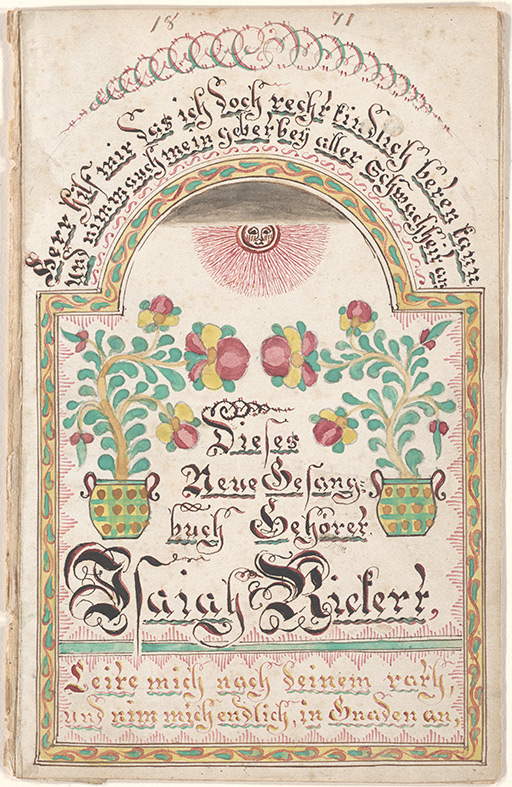 18 71
Herr hilf mir das ich doch recht kindlich beten kann
Und nimm auch mein gebet bey aller Schwachheit an
Dieses
Neue Gesang=
buch Gehöret
Isaiah Rickert,
Leite mich nach deinem rath,
und nim mich endlich, in Gnaden an,